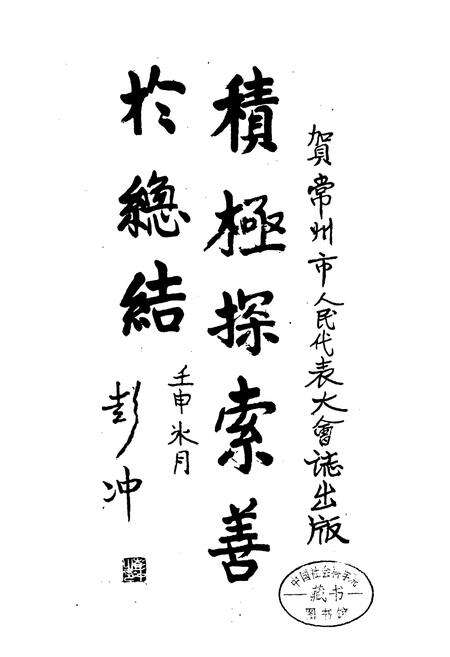 賀常州市人民代表大會誌出版
積極探索善
於總結
壬申冰月
彭冲
中国社会科学院
藏书
图书馆